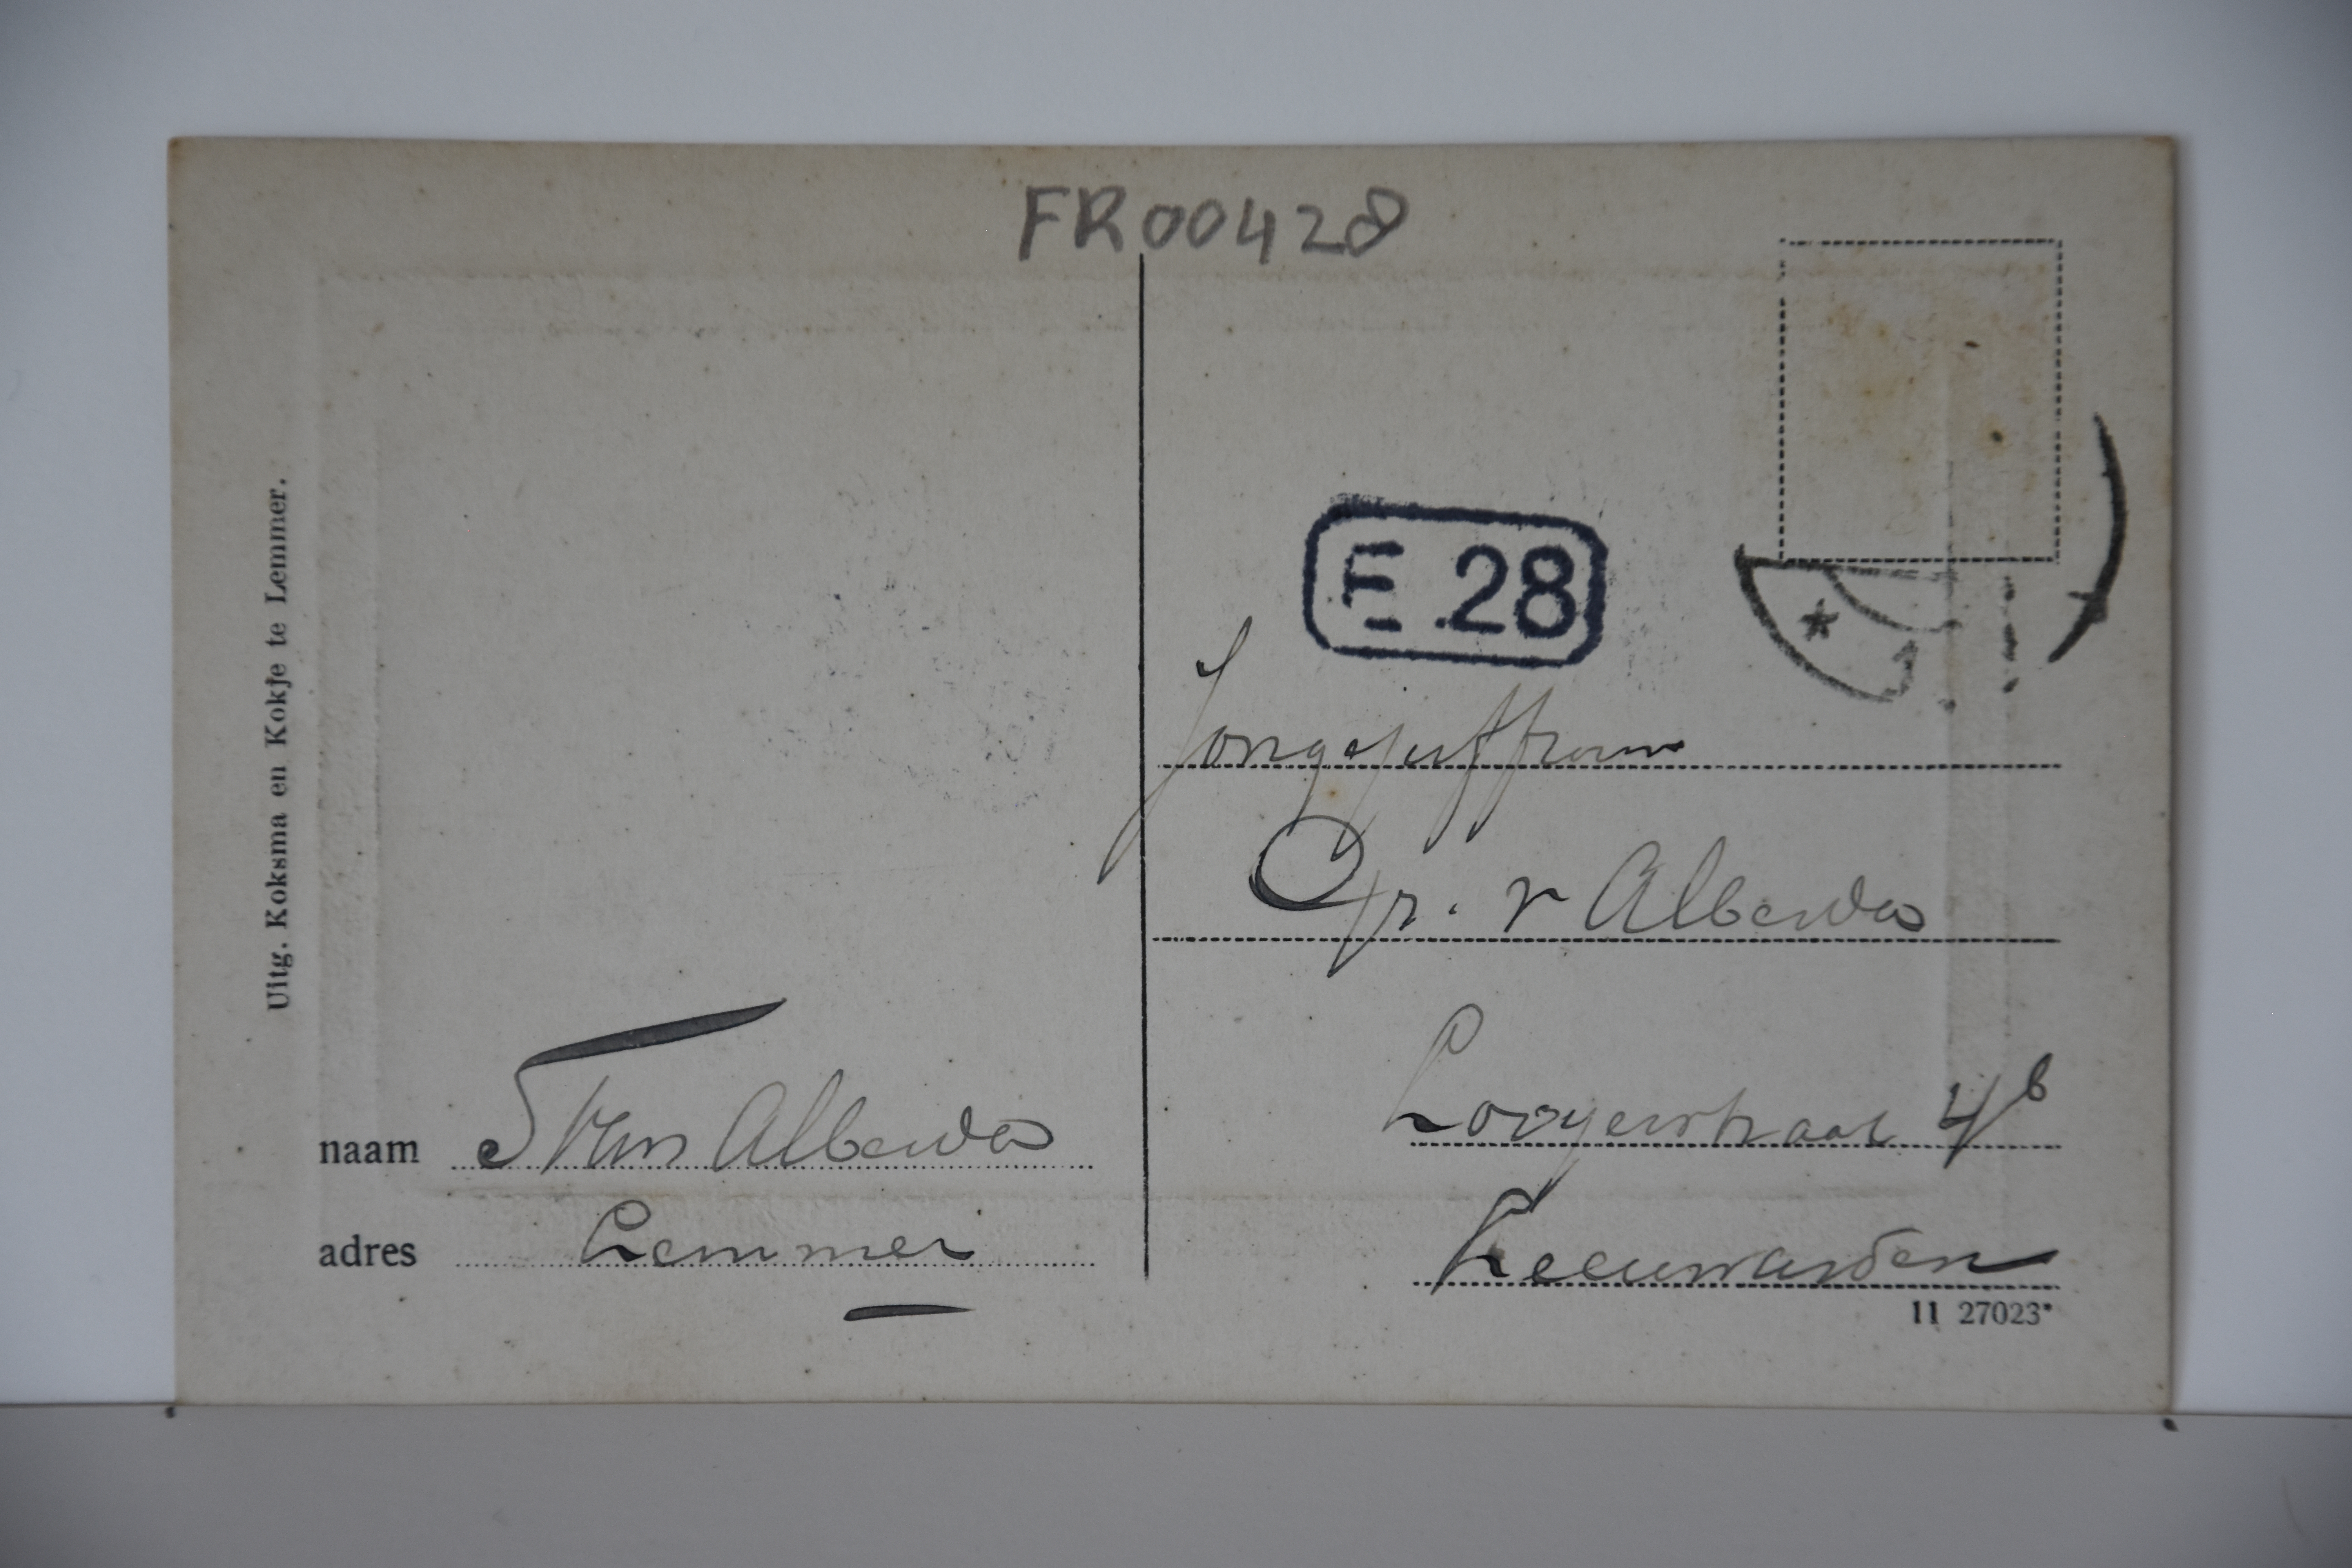 FR00428
Uitg. Koksma en Kokje te Lemmer.
E 28
Jongejuffrouw
v Alberda
Looyerstraat 4b
Leeuwarden
naam Alberda
adres Lemmer
11 27023*